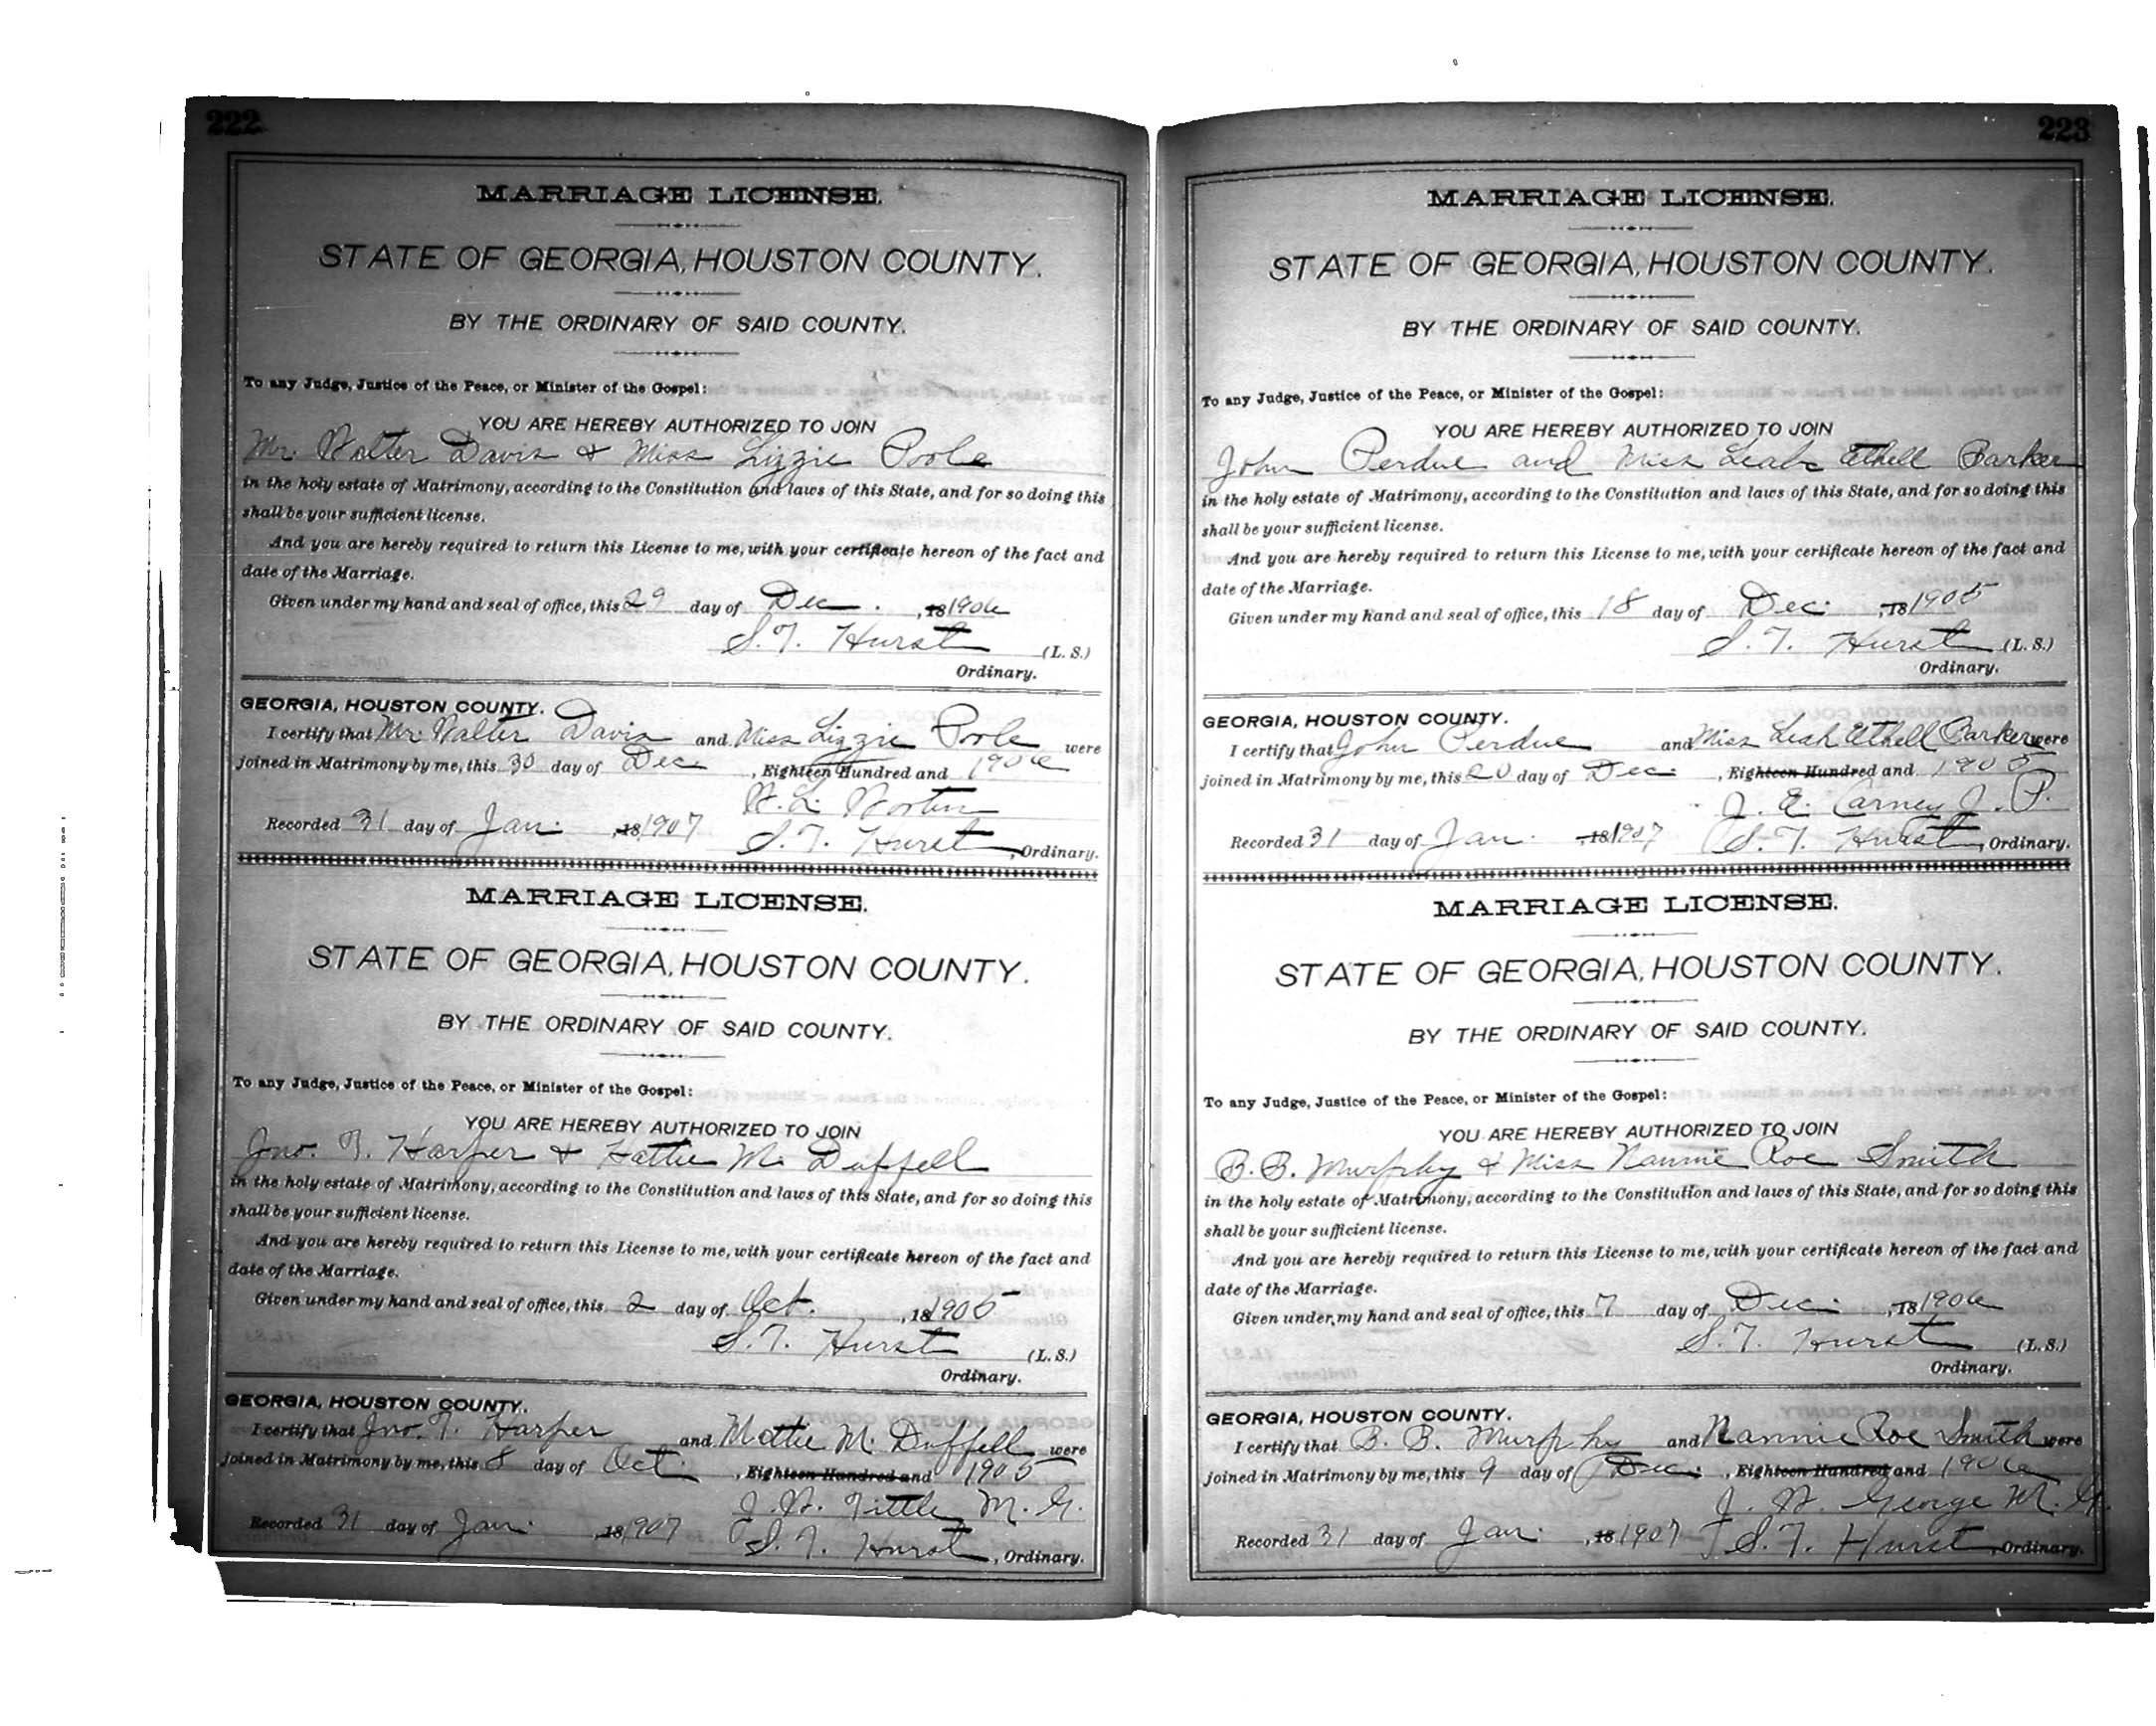 222
MARRIAGE LICENSE.
STATE OF GEORGIA, HOUSTON COUNTY.
BY THE ORDINARY OF SAID COUNTY.
To any Judge, Justice of the Peace, or Minister of the Gospel:
YOU ARE HEREBY AUTHORIZED TO JOIN
Mr. Walter Davis & Miss Lizzie Poole
in the holy estate of Matrimony, according to the Constitution and laws of this State, and for so doing this
shall be your sufficient license.
And you are hereby required to return this License to me, with your certificate hereon of the fact and
date of the Marriage.
Given under my hand and seal of office, this 29 day of Dec. , 18 1906
S. T. Hurst (L. S.)
Ordinary.
GEORGIA, HOUSTON COUNTY.
I certify that Mr. Walter Davis and Miss Lizzie Poole were
joined in Matrimony by me, this 30 day of Dec , Eighteen Hundred and 1906
W. L.
Recorded 31 day of Jan. , 18 1907 S. T. Hurst, Ordinary.
MARRIAGE LICENSE.
STATE OF GEORGIA, HOUSTON COUNTY.
BY THE ORDINARY OF SAID COUNTY.
To any Judge, Justice of the Peace, or Minister of the Gospel:
YOU ARE HEREBY AUTHORIZED TO JOIN
Jno. T. Harper & Hattie M. Duffell
in the holy estate of Matrimony, according to the Constitution and laws of this State, and for so doing this
shall be your sufficient license.
And you are hereby required to return this License to me, with your certificate hereon of the fact and
date of the Marriage.
Given under my hand and seal of office, this 2 day of Oct. , 18 1905
S. T. Hurst (L. S.)
Ordinary.
GEORGIA, HOUSTON COUNTY.
I certify that Jno. T. Harper and Mattie M. Duffell were
joined in Matrimony by me, this 8 day of Oct. , Eighteen Hundred and 1905
J. W. Tittle M. G.
Recorded 31 day of Jan. , 18 1907 S. T. Hurst, Ordinary.
223
MARRIAGE LICENSE.
STATE OF GEORGIA, HOUSTON COUNTY.
BY THE ORDINARY OF SAID COUNTY.
To any Judge, Justice of the Peace, or Minister of the Gospel:
YOU ARE HEREBY AUTHORIZED TO JOIN
John Perdue and Miss Leah Ethell Parker
in the holy estate of Matrimony, according to the Constitution and laws of this State, and for so doing this
shall be your sufficient license.
And you are hereby required to return this License to me, with your certificate hereon of the fact and
date of the Marriage.
Given under my hand and seal of office, this 18 day of Dec. , 18 1905
S. T. Hurst (L. S.)
Ordinary.
GEORGIA, HOUSTON COUNTY.
I certify that John Perdue and Miss Leah Ethell Parker were
joined in Matrimony by me, this 20 day of Dec. , Eighteen Hundred and 1905
J. E. Carney J. P.
Recorded 31 day of Jan. , 18 1907 S. T. Hurst, Ordinary.
MARRIAGE LICENSE.
STATE OF GEORGIA, HOUSTON COUNTY.
BY THE ORDINARY OF SAID COUNTY.
To any Judge, Justice of the Peace, or Minister of the Gospel:
YOU ARE HEREBY AUTHORIZED TO JOIN
B. B. Murphy & Miss Nannie Roe Smith
in the holy estate of Matrimony, according to the Constitution and laws of this State, and for so doing this
shall be your sufficient license.
And you are hereby required to return this License to me, with your certificate hereon of the fact and
date of the Marriage.
Given under my hand and seal of office, this 7 day of Dec. , 18 1906
S. T. Hurst (L. S.)
Ordinary.
GEORGIA, HOUSTON COUNTY.
I certify that B. B. Murphy and Nannie Roe Smith were
joined in Matrimony by me, this 9 day of Dec. , Eighteen Hundred and 1906
J. W. George M. G.
Recorded 31 day of Jan. , 18 1907 S. T. Hurst, Ordinary.